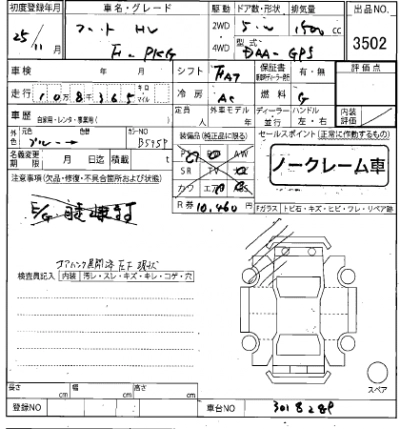 初度登録年月 車名・グレード 駆動 ドア数・形状 排気量 出品NO.
25/11月 フィット HV 2WD 5 1500 cc
F PKG 4WD 型式 DAA-GP5 3502
車検 年 月 シフト FAT 保証書 有・無 評価点
走行 10万8千365 キロ マイル 冷房 AC 燃料 G
車歴 自家用・レンタ・事業用( ) 定員 人 外車モデル 年 ディーラー 並行 ハンドル 左・右 内装評価
外色 元色 ブルー → 色替 カラーNO B575P 装備品(純正品に限る) セールスポイント(正常に作動するもの)
名義変更期限 月 日迄 積載 t AW
SR TV
カワ エアB
ノークレーム車
注意事項(欠品・修理・不具合箇所および状態)
R券 10,460円 Fガラス トビ石・キズ・ヒビ・フレ・リペア跡
E/G
検査員記入 内装 汚レ・スレ・キズ・キレ・コゲ・穴
スペア
長さ cm 幅 cm 高さ cm
登録NO 車台NO 3018289